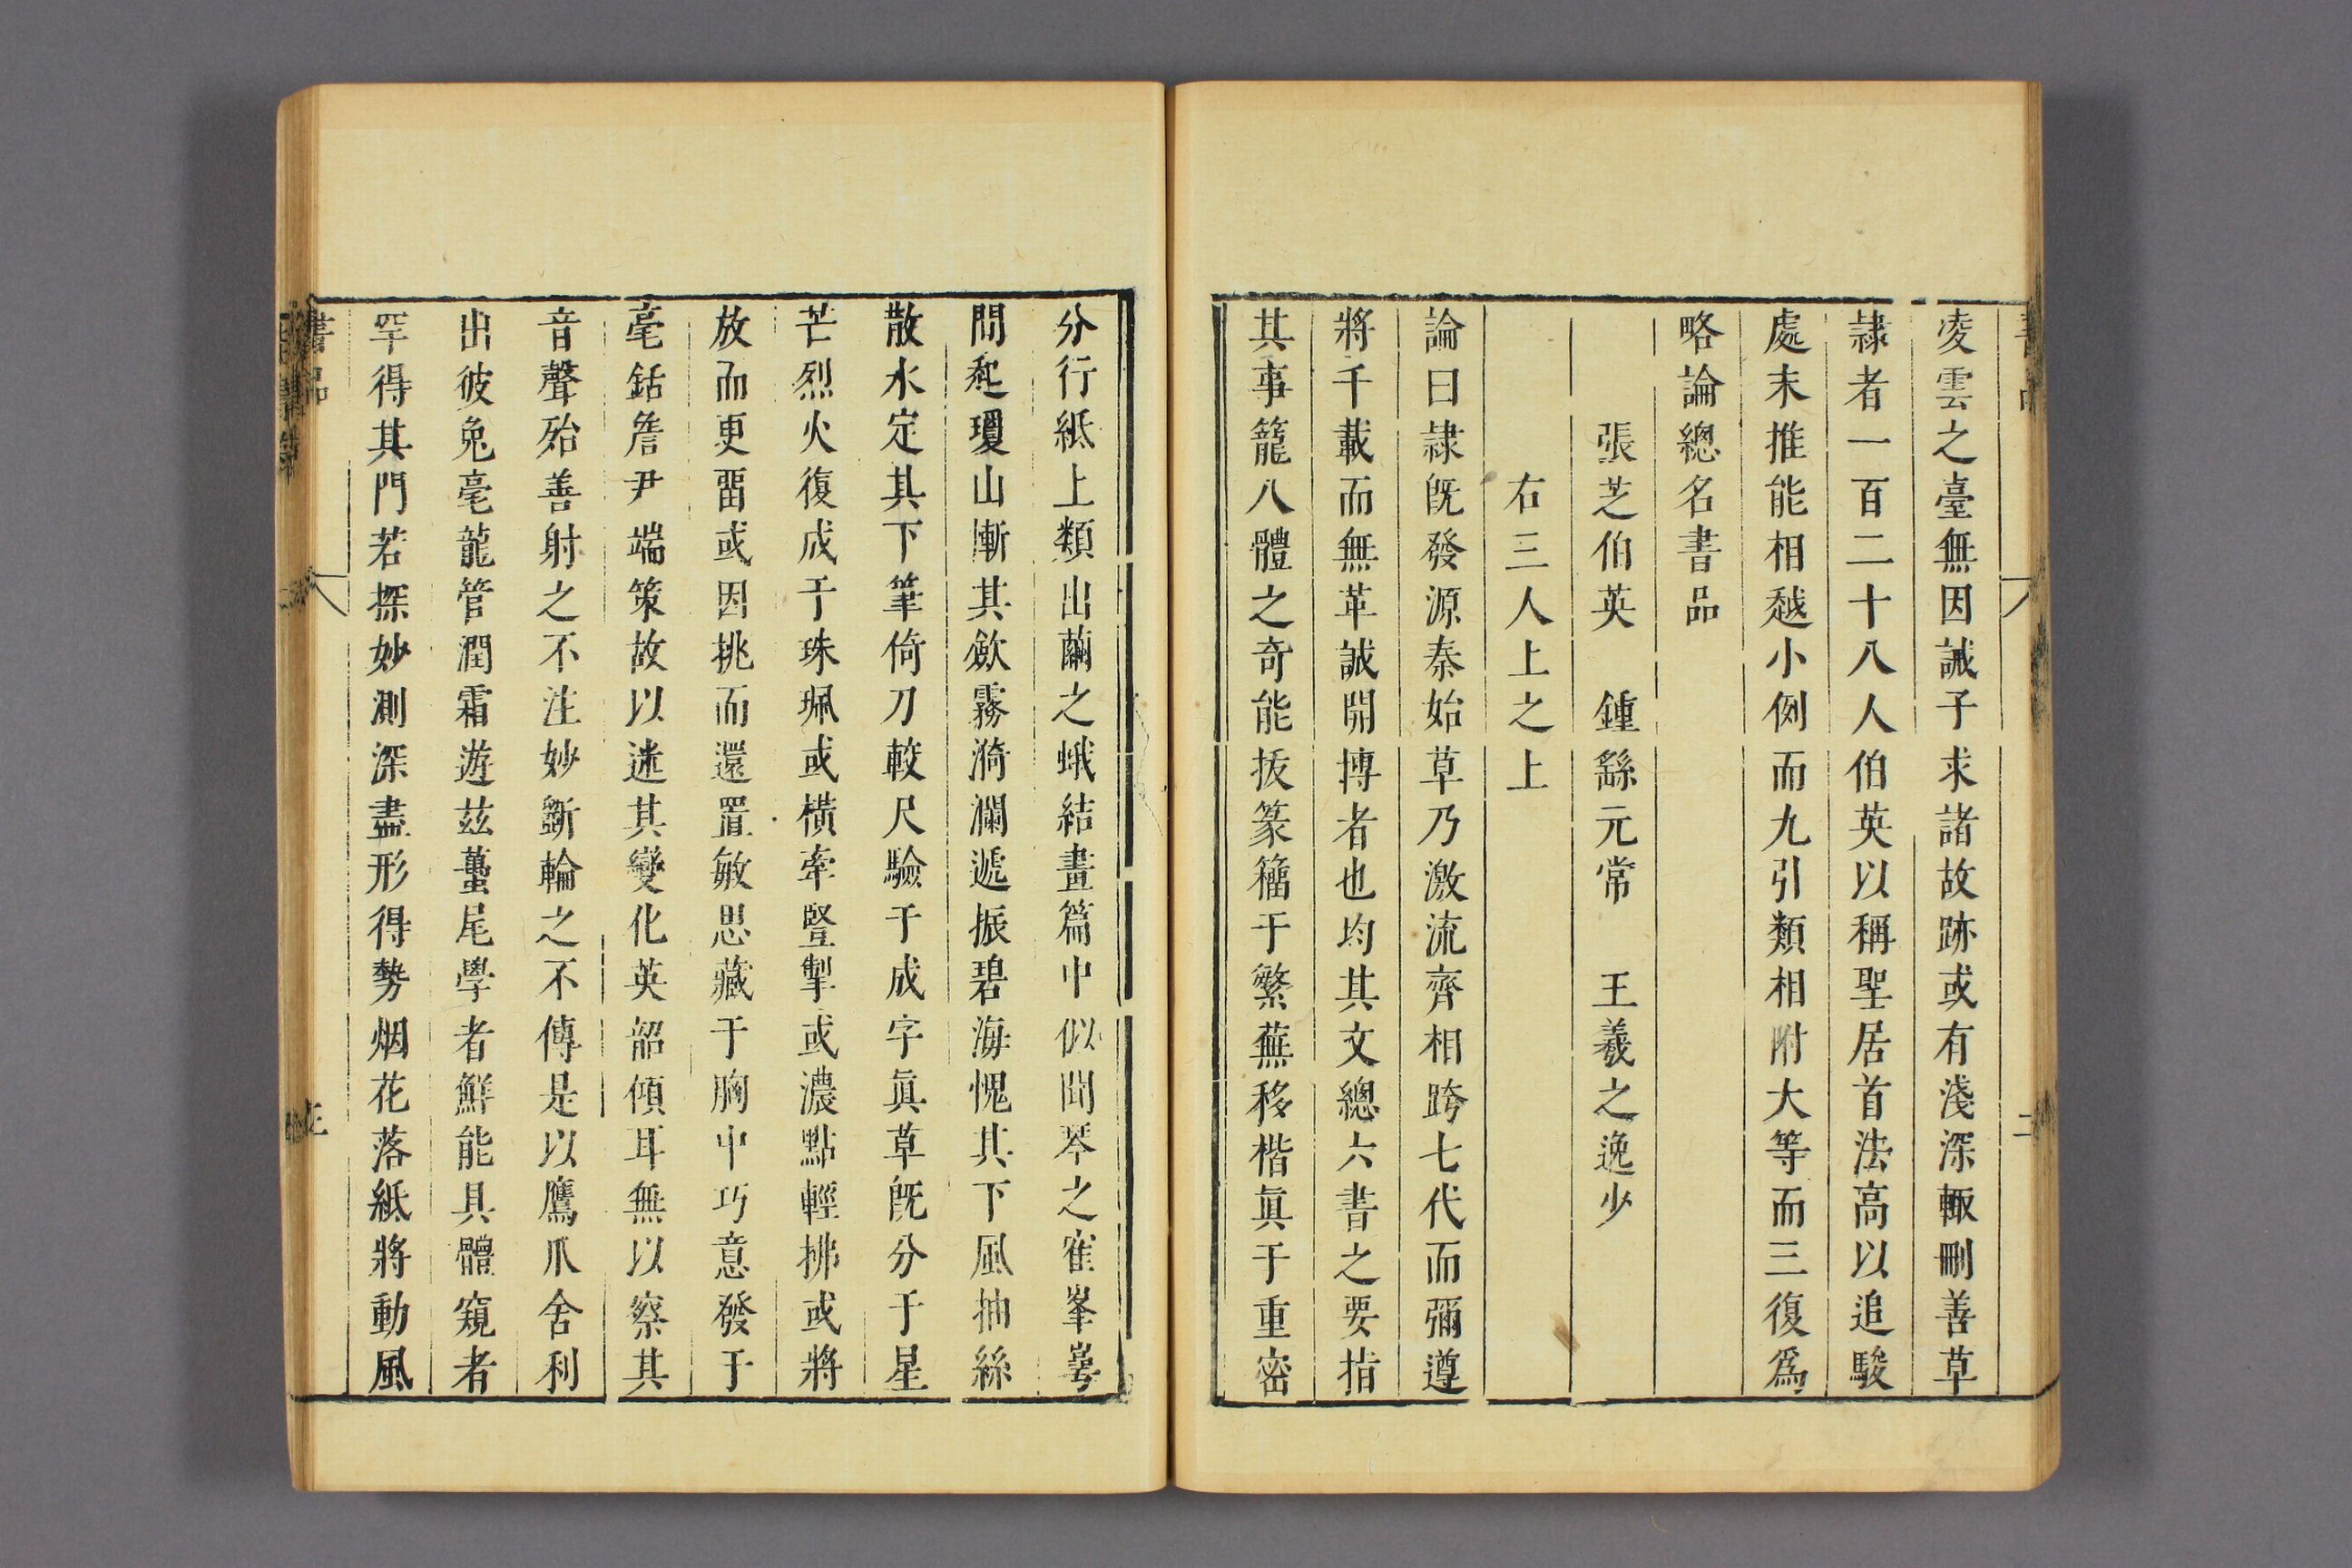 凌雲之臺無因誡子求諸故跡或有淺深輙刪善草
隷者一百二十八人伯英以稱聖居首法高以追駿
處末推能相越小例而九引類相附大等而三復爲
略論總名書品
張芝伯英　鍾繇元常　王羲之逸少
右三人上之上
論曰隷旣發源秦始草乃激流齊相跨七代而彌遵
將千載而無革誠開博者也均其文總六書之要指
其事籠八體之奇能拔篆籒于繁蕪移楷眞于重密
分行紙上類出繭之蛾結畫篇中似聞琴之寉峯崿
間起瓊山慚其歛霧漪瀾遞振碧海愧其下風抽絲
散水定其下筆倚刀較尺驗于成字眞草旣分于星
芒烈火復成于珠珮或横牽豎掣或濃點輕拂或將
放而更畱或因挑而還置敏思藏于胸中巧意發于
毫銛詹尹端策故以迷其變化英韶傾耳無以察其
音聲殆善射之不注妙斵輪之不傳是以鷹爪含利
出彼兔毫龍管潤霜遊兹蠆尾學者鮮能具體窺者
罕得其門若探妙測深盡形得勢烟花落紙將動風
書品